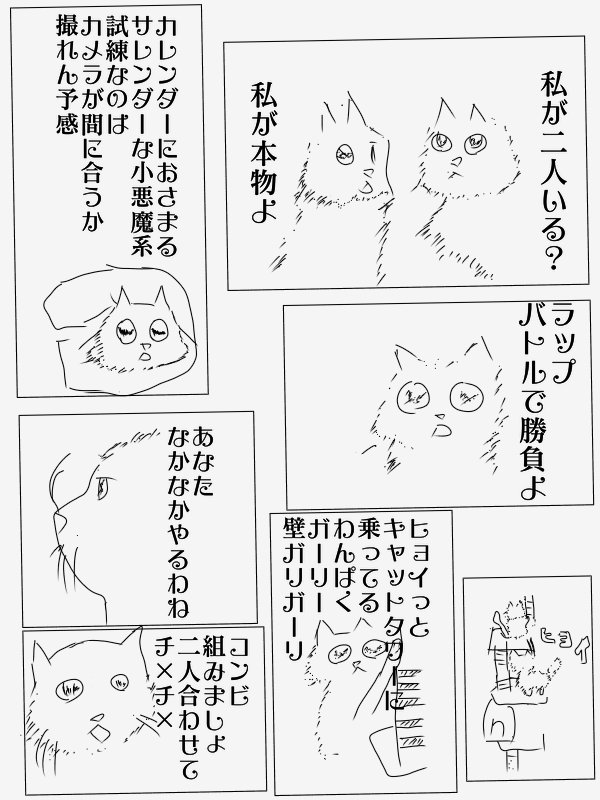 私が二人いる?
私が本物よ
ラップ
バトルで勝負よ
ヒョイ
ヒョイっと
キャットタワーに
乗ってる
わんぱく
ガーリー
壁ガリガーリ
カレンダーにおさまる
サレンダーな小悪魔系
試練なのは
カメラが間に合うか
撮れん予感
あなた
なかなかやるわね
コンビ
組みましょ
二人合わせて
チ×チ×
n